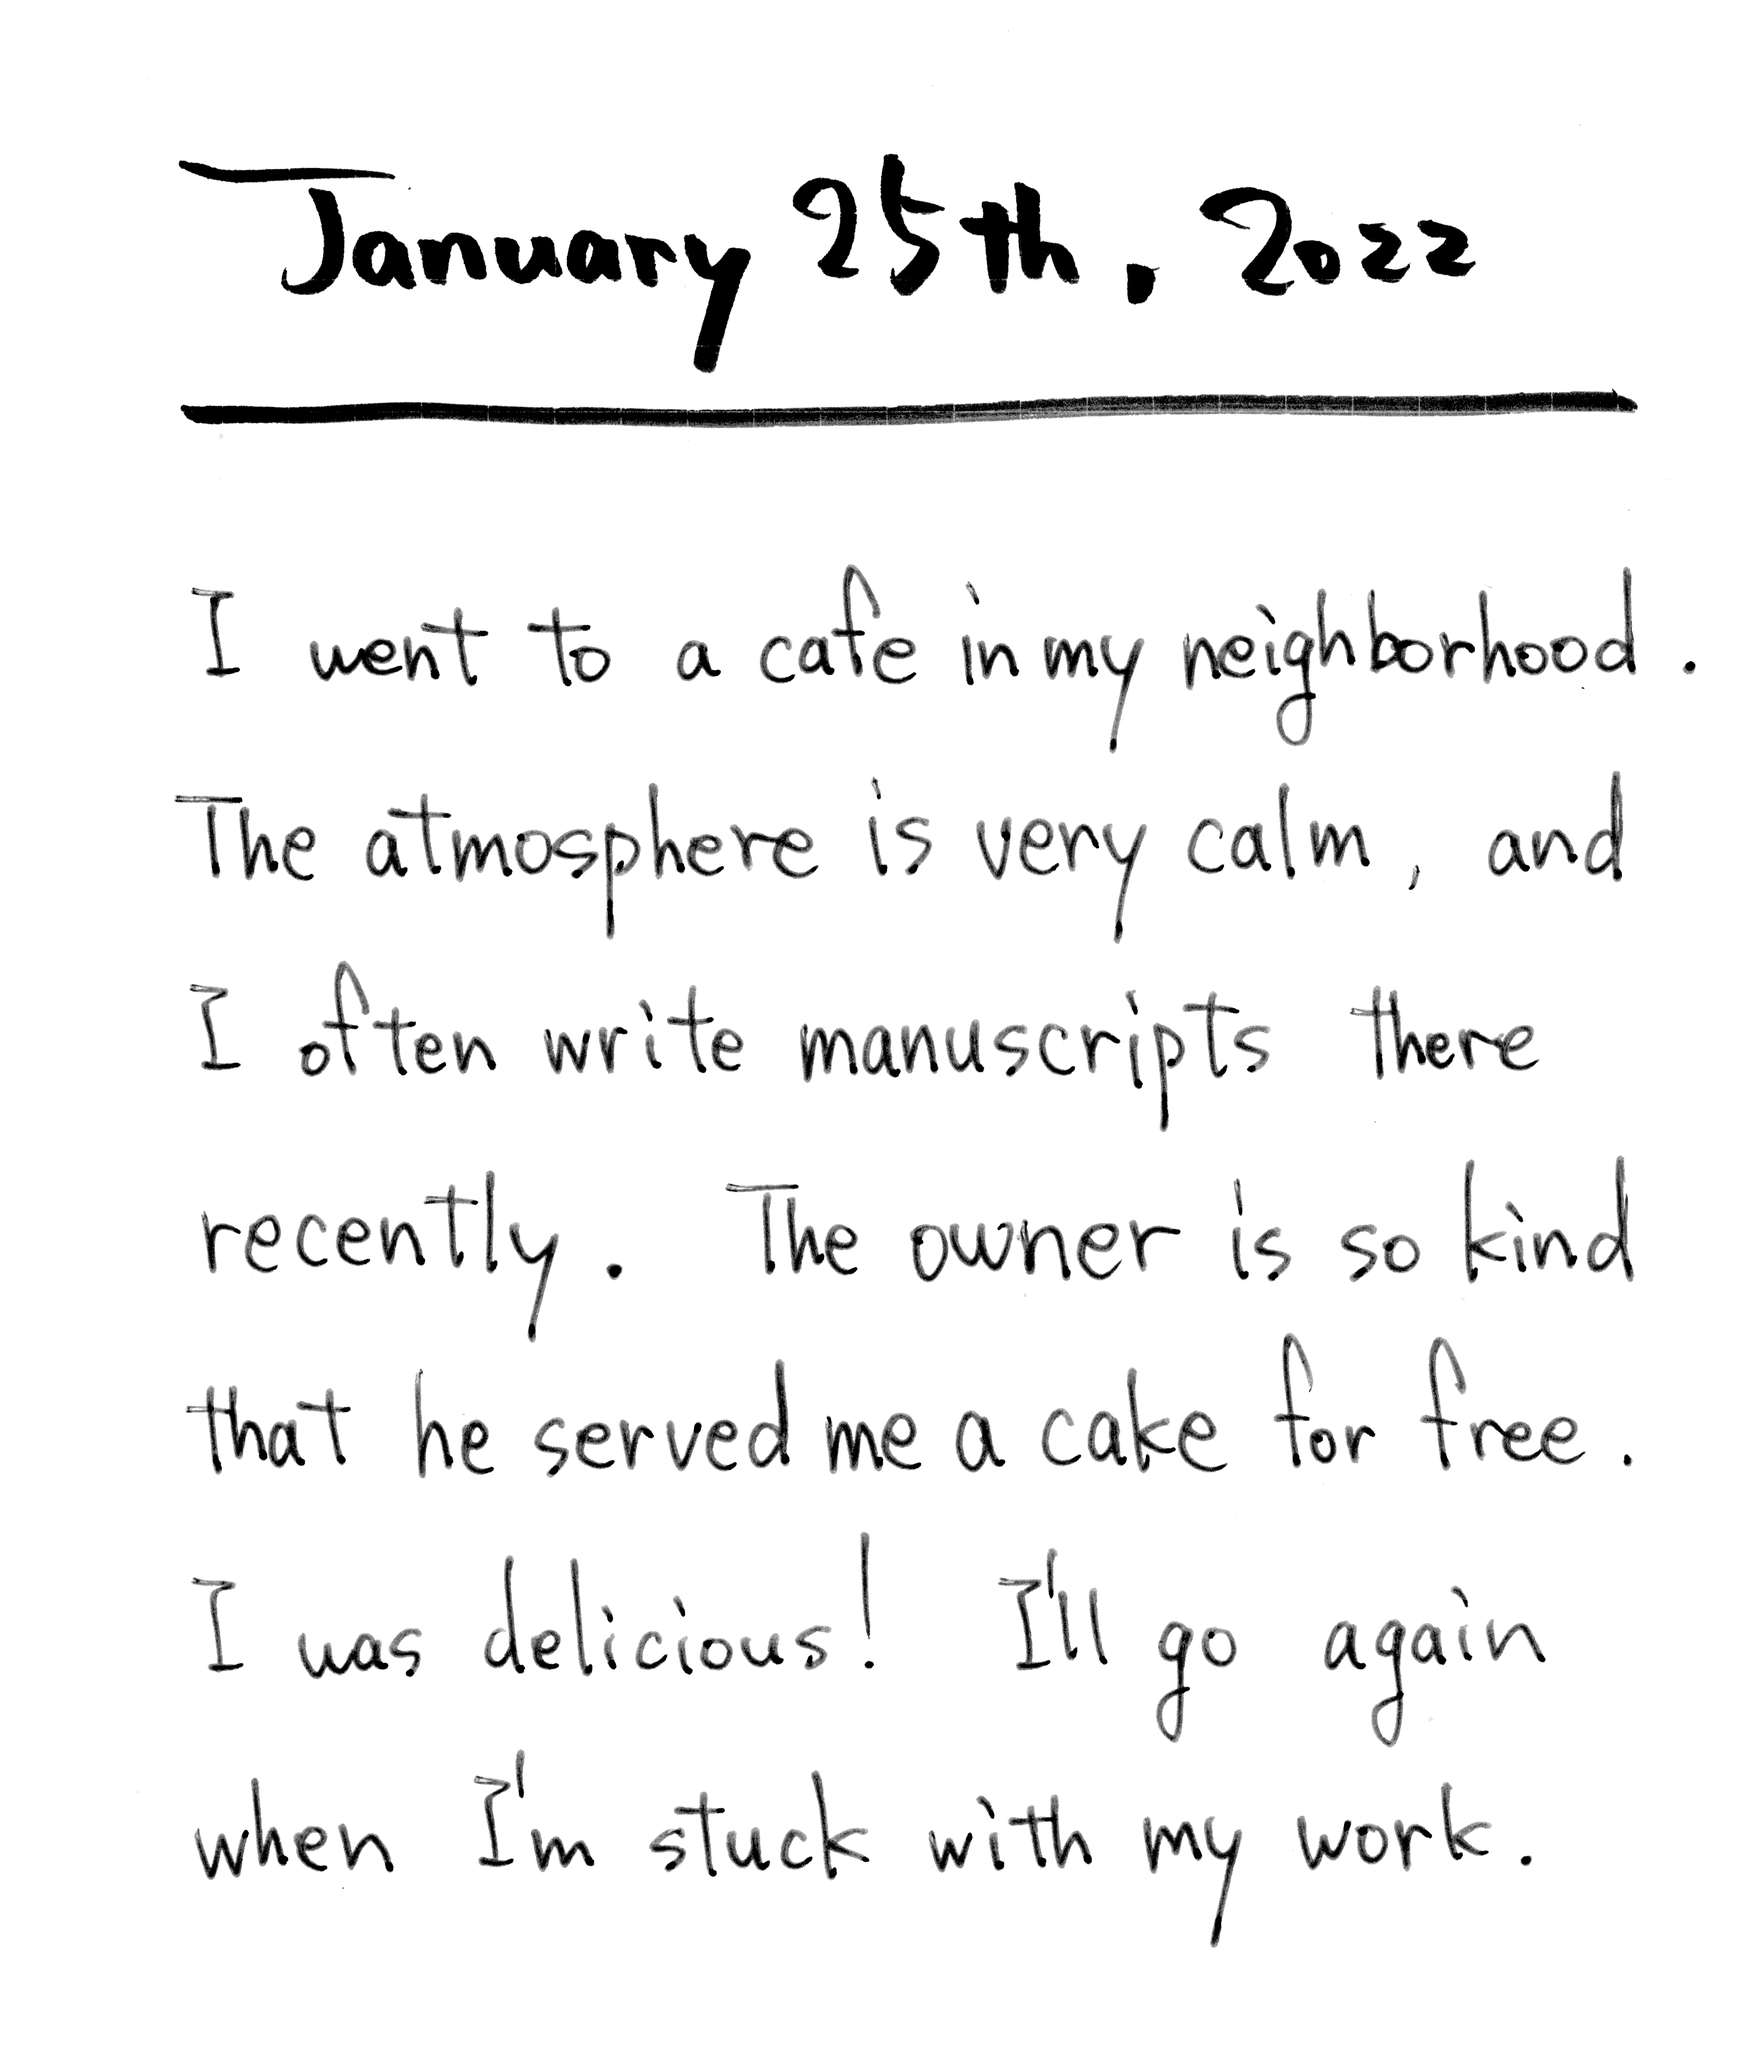 January 25th, 2022
I went to a cafe in my neighborhood.
The atmosphere is very calm, and
I often write manuscripts there
recently. The owner is so kind
that he served me a cake for free.
I was delicious! I'll go again
when I'm stuck with my work.